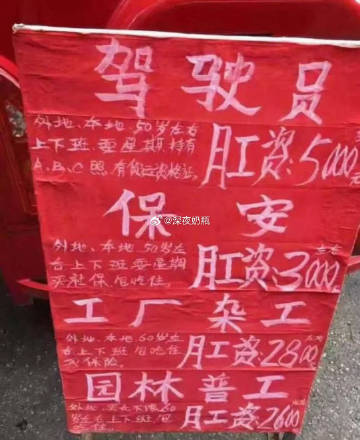 驾驶员
外地、本地、50岁左右
上下班、要星期、持有
A、B、C照、有货运资格证。
月工资:5000元
保安
外地、本地、50岁左
右上下班要星期
买社保包吃住。
月工资:3000
左右
工厂杂工
外地、本地60岁左
右上下班包吃住
买保险。
月工资:2800
园林普工
外地、
60
岁左右上下班包
月工资:2600
@深夜奶瓶